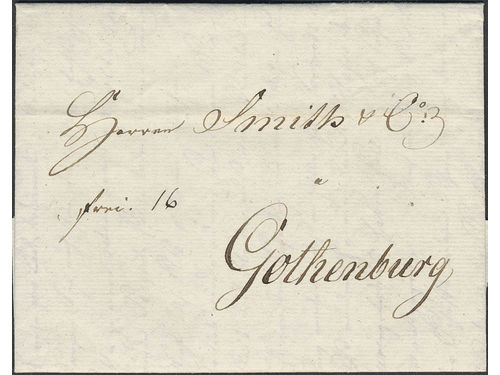 Herren Smith & Co:
a
frei. 16
Gothenburg